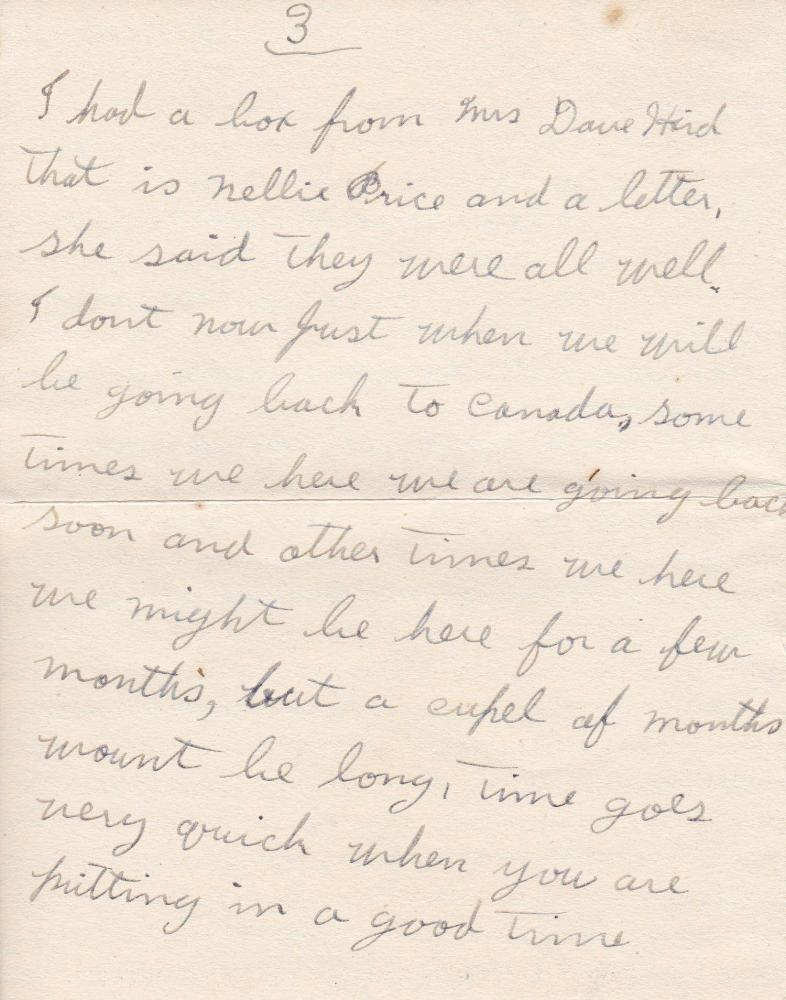 3
I had a box from Mrs Dave Hird
that is nellie Price and a letter,
she said they were all well.
I dont now just when we will
be going back to canada, some
times we here we are going back
soon and other times we here
we might be here for a few
months, but a cupel of months
wount be long, time goes
very quick when you are
putting in a good time